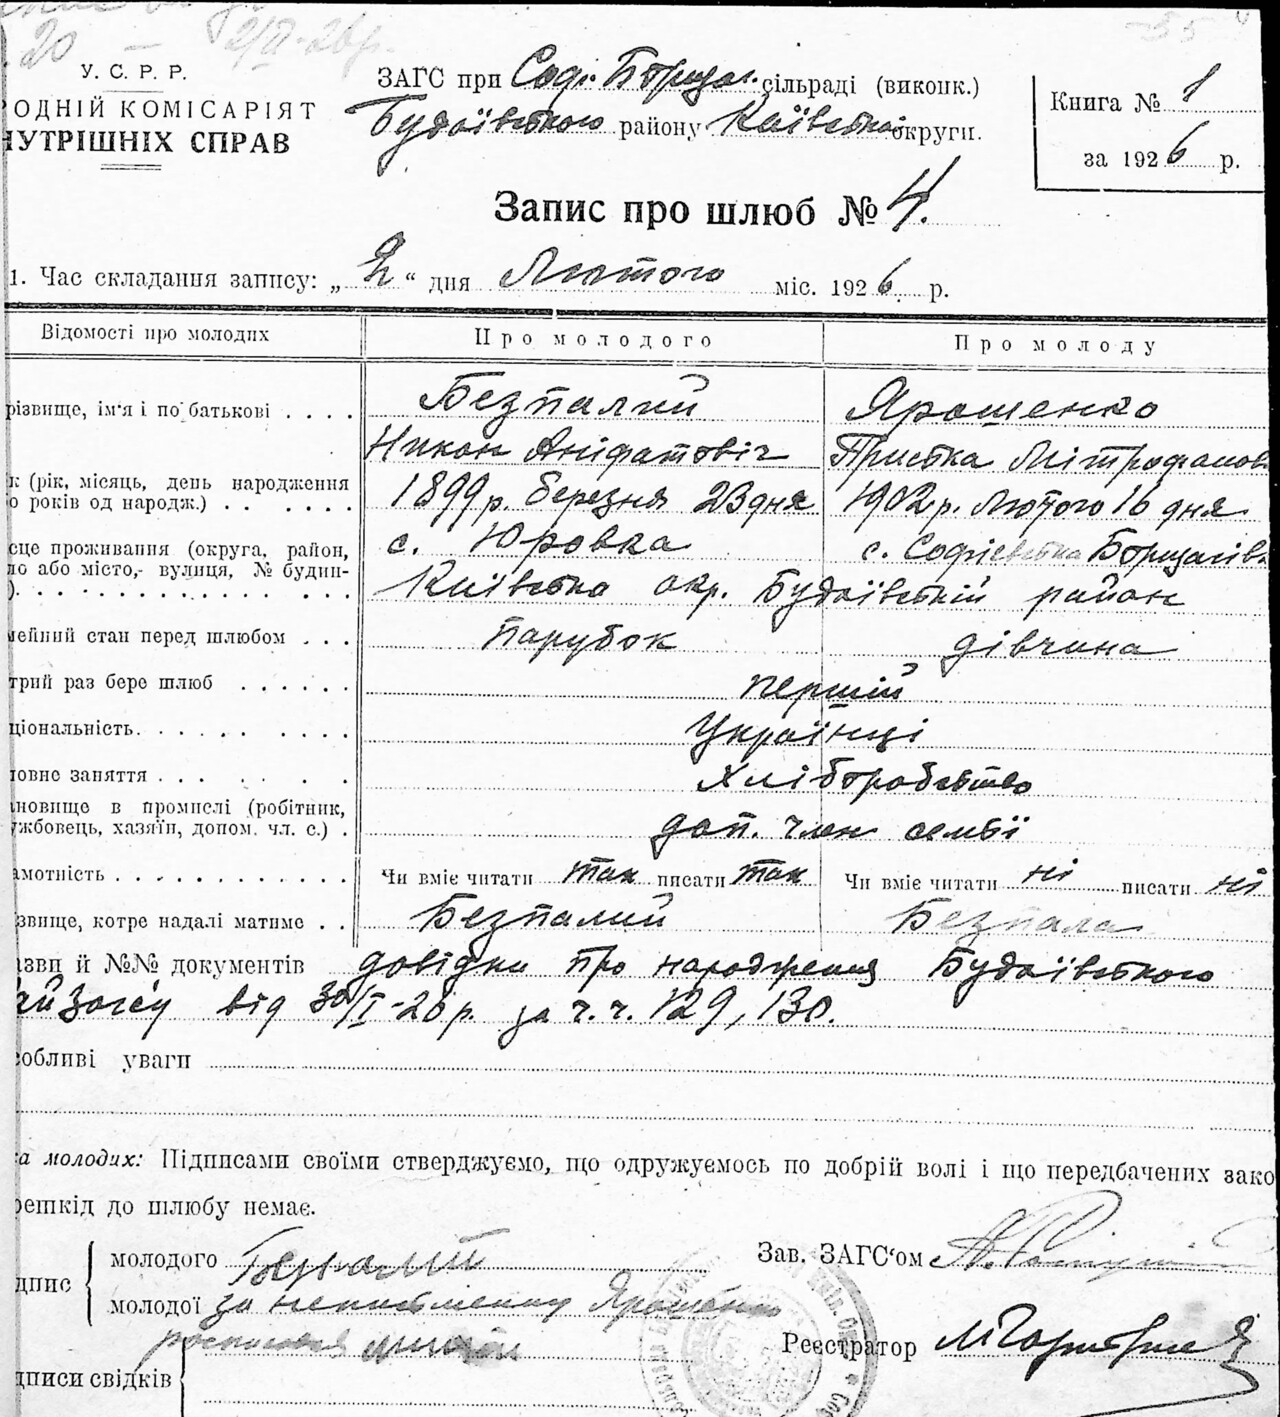 20 — 2/II-26р.
55
У. С. Р. Р.
РОДНІЙ КОМІСАРІЯТ
НУТРІШНІХ СПРАВ
ЗАГС при Соф. Борщаг. сільраді (виконк.)
Будаївського району Київської округи.
Книга № 1
за 1926 р.
Запис про шлюб № 4.
1. Час складання запису: „ 2 “ дня Лютого міс. 1926 р.
Відомості про молодих Про молодого Про молоду
різвище, ім'я і по батькові . . . . Безпалий Ярошенко
Никон Аніфатовіч Пристка Мітрофанов
к (рік, місяць, день народження
о років од народж.) . . . . . . 1899 р. березня 23 дня 1902 р. Лютого 16 дня
сце проживання (округа, район, с. Юровка с. Софієвська Борщагівк
ло або місто, вулиця, № будин-
). . . . . . . . . . . . . . . . Київська окр. Будаївський район
мейний стан перед шлюбом . . . парубок дівчина
трий раз бере шлюб . . . . . . першій
ціональність. . . . . . . . . . Українці
ловне заняття . . . . . . . хліборобство
новище в промислі (робітник,
ужбовець, хазяїн, допом. чл. с.) . доп. член семьї
амотність . . . . . . . . . . . . Чи вміє читати так писати так Чи вміє читати ні писати ні
звище, котре надалі матиме . . Безпалий Безпала
азви й №№ документів довідки про народження Будаївського
айЗагсу від 30/I-26 р. за ч.ч. 129, 130.
собливі уваги
а молодих: Підписами своїми стверджуємо, що одружуємось по добрій волі і що передбачених зако
решкід до шлюбу немає.
дпис { молодого Безпалий
Зав. ЗАГС'ом
молодої за неписьменну Ярошенко
росписався
Реєстратор
дписи свідків {